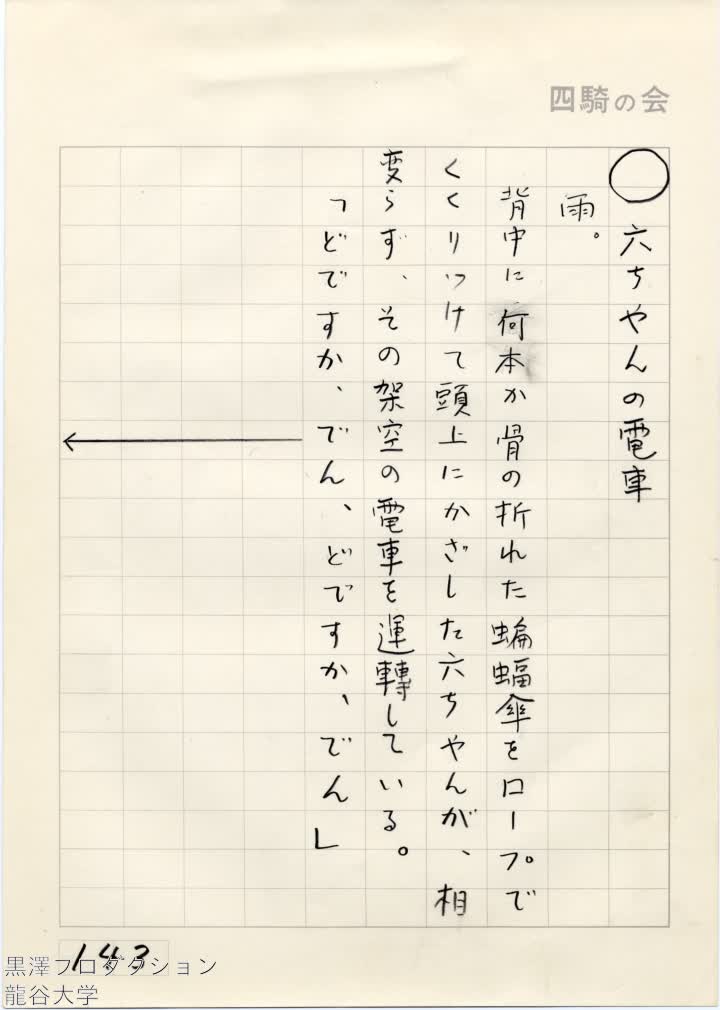 四騎の会
○ 六ちゃんの電車
雨。
背中に何本か骨の折れた蝙蝠傘をロープで
くくりつけて頭上にかざした六ちゃんが、相
変らず、その架空の電車を運轉している。
「どですか、でん、どですか、でん」
143
黒澤プロダクション
龍谷大学